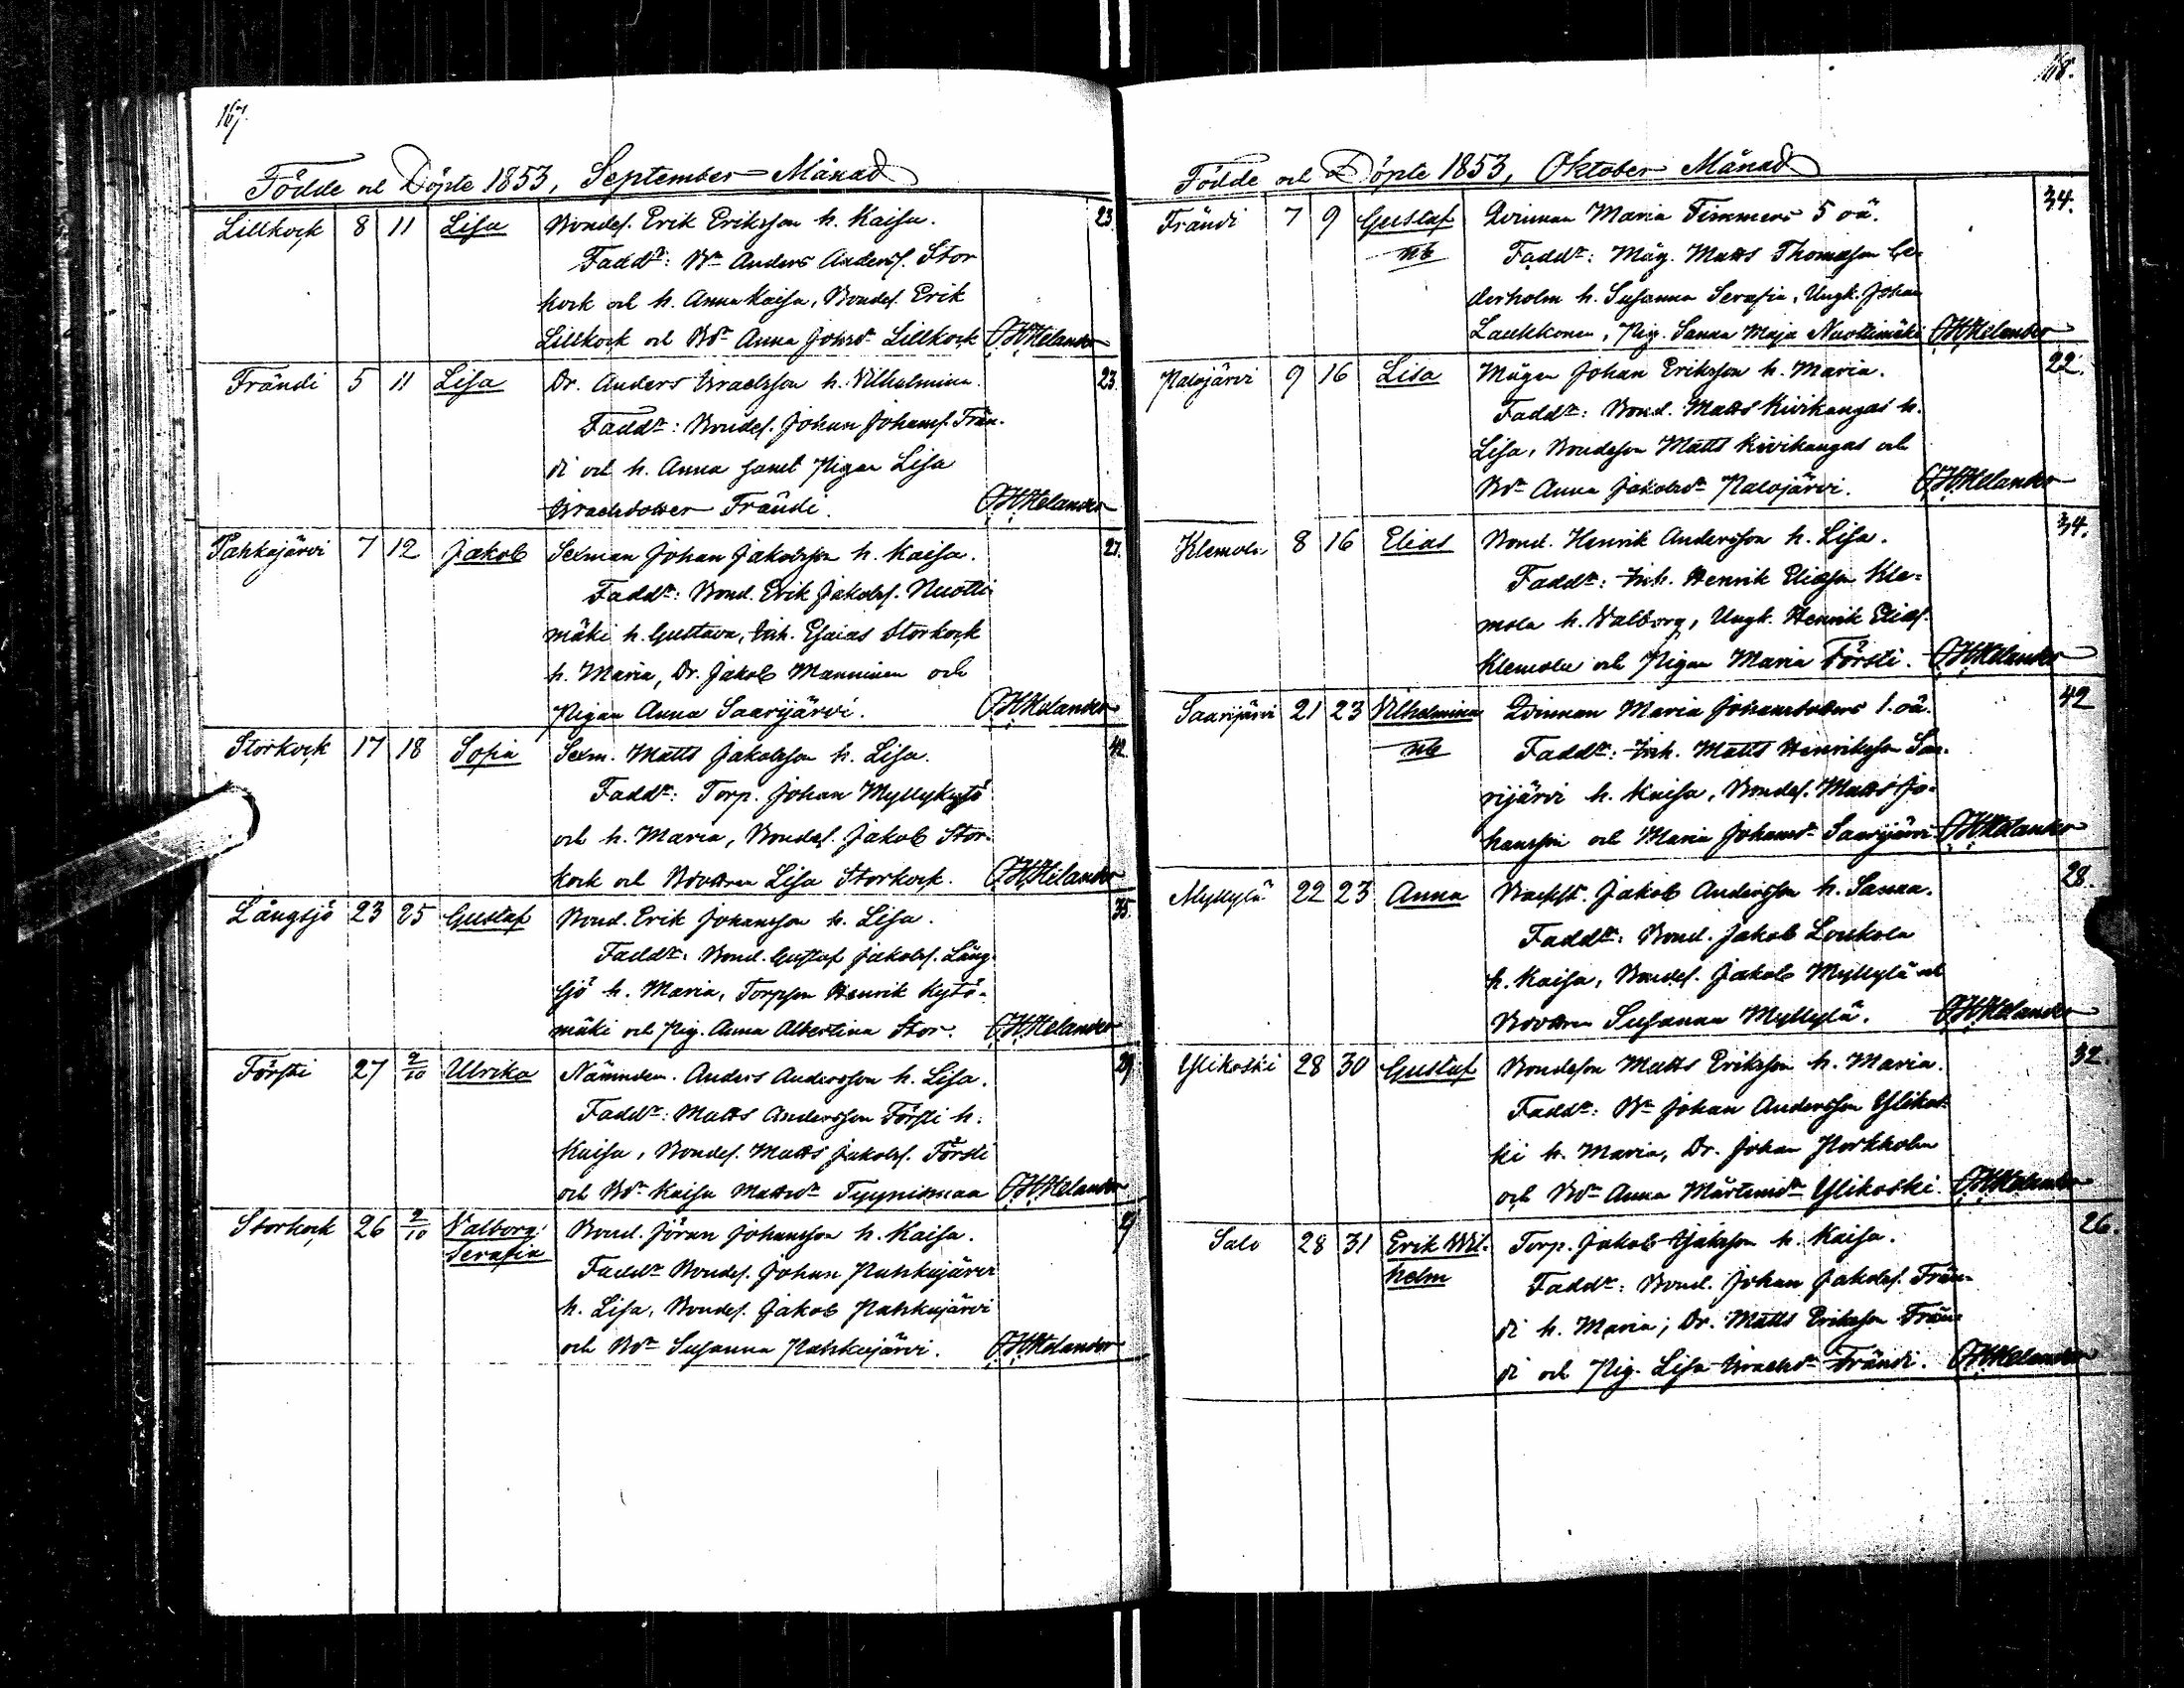 167.
Födde och Döpte 1853, September Månad
Lillkock 8 11 Lisa Bondes. Erik Eriksson h. Kaisa. 23.
Faddr: Bn Anders Anderss. Stor
kock och h. Anna Kaisa, Bondes. Erik
Lillkock och Bdr Anna Johsdr Lillkock OHHelander
Frändi 5 11 Lisa Dr. Anders Israelsson h. Vilhelmina. 23.
Faddr: Bondes. Johan Johanss. Frän-
di och h. Anna samt Pigan Lisa
Israelsdotter Frändi. OHHelander
Pahkajärvi 7 12 Jakob Sexman Johan Jakobsson h. Kaisa. 27.
Faddr: Bond. Erik Jakobs. Nuotti
mäki h. Gustava, Inh. Esaias Storkock
h. Maria, Dr. Jakob Manninen och
Pigan Anna Saarijärvi. OHHelander
Storkock 17 18 Sofia Sexm. Matts Jakobsson h. Lisa. 42.
Faddr: Torp. Johan Myllykytö
och h. Maria, Bondes. Jakob Stor-
kock och Bdottren Lisa Storkock. OHHelander
Långsjö 23 25 Gustaf Bond. Erik Johansson h. Lisa. 35.
Faddr: Bond. Gustaf Jakobs. Lång-
sjö h. Maria, Torpson Henrik Kytö-
mäki och Pig. Anna Albertina Stor. OHHelander
Försti 27 2/10 Ulrika Nämndem. Anders Andersson h. Lisa. 29.
Faddr: Matts Andersson Försti h.
Kaisa, Bondes. Matts Jakobs. Försti
och Bdr Kaisa Mattsdr Tyynismaa OHHelander
Storkock 26 2/10 Valborg Bond. Jöran Johansson h. Kaisa.
Serafia
Faddr Bondes. Johan Pahkajärvi
h. Lisa, Bondes. Jakob Pahkajärvi
och Bdr Susanna Pahkajärvi. OHHelander
168.
Födde och Döpte 1853, Oktober Månad
Frändi 7 9 Gustaf Qvinnan Maria Timmers 5 oä. 34.
nb Faddr: Måg. Matts Thomasson Ce-
derholm h. Susanna Serafia, Ungk. Johan
Laukkonen, Pig. Sanna Maja Nuottimäki OHHelander
Palojärvi 9 16 Lisa Mågen Johan Eriksson h. Maria. 22.
Faddr: Bond. Matts Kivikangas h.
Lisa, Bondeson Matts Kivikangas och
Bdr Anna Jakobsdr Palojärvi. OHHelander
Klemola 8 16 Elias Bond. Henrik Andersson h. Lisa. 34.
Faddr: Inh. Henrik Eliasson Kle-
mola h. Valborg, Ungk. Henrik Elias.
Klemola och Pigan Maria Försti. OHHelander
Saarijärvi 21 23 Vilhelmina Qvinnan Maria Johansdotters 1. oä. 42
nb Faddr: Inh. Matts Henriksson Saa-
rijärvi h. Kaisa, Bondes. Matts Jo-
hansson och Maria Johansdr Saarijärvi OHHelander
Myllylä 22 23 Anna Backst. Jakob Andersson h. Sanna. 28.
Faddr: Bond. Jakob Loukola
h. Kaisa, Bondes. Jakob Myllylä och
Bdottren Susanna Myllylä. OHHelander
Ylikoski 28 30 Gustaf Bondeson Matts Eriksson h. Maria. 32.
Faddr: Bn Johan Andersson Ylikos-
ki h. Maria, Dr. Johan Norkholm
och Bdr Anna Mårtensdr Ylikoski. OHHelander
Salo 28 31 Erik Wil- Torp. Jakob h. Kaisa. 26.
helm Faddr: Bond. Johan Jakobs. Frän-
di h. Maria; Dr. Matts Eriksson Frän-
di och Pig. Lisa Israelsdr Frändi. OHHelander